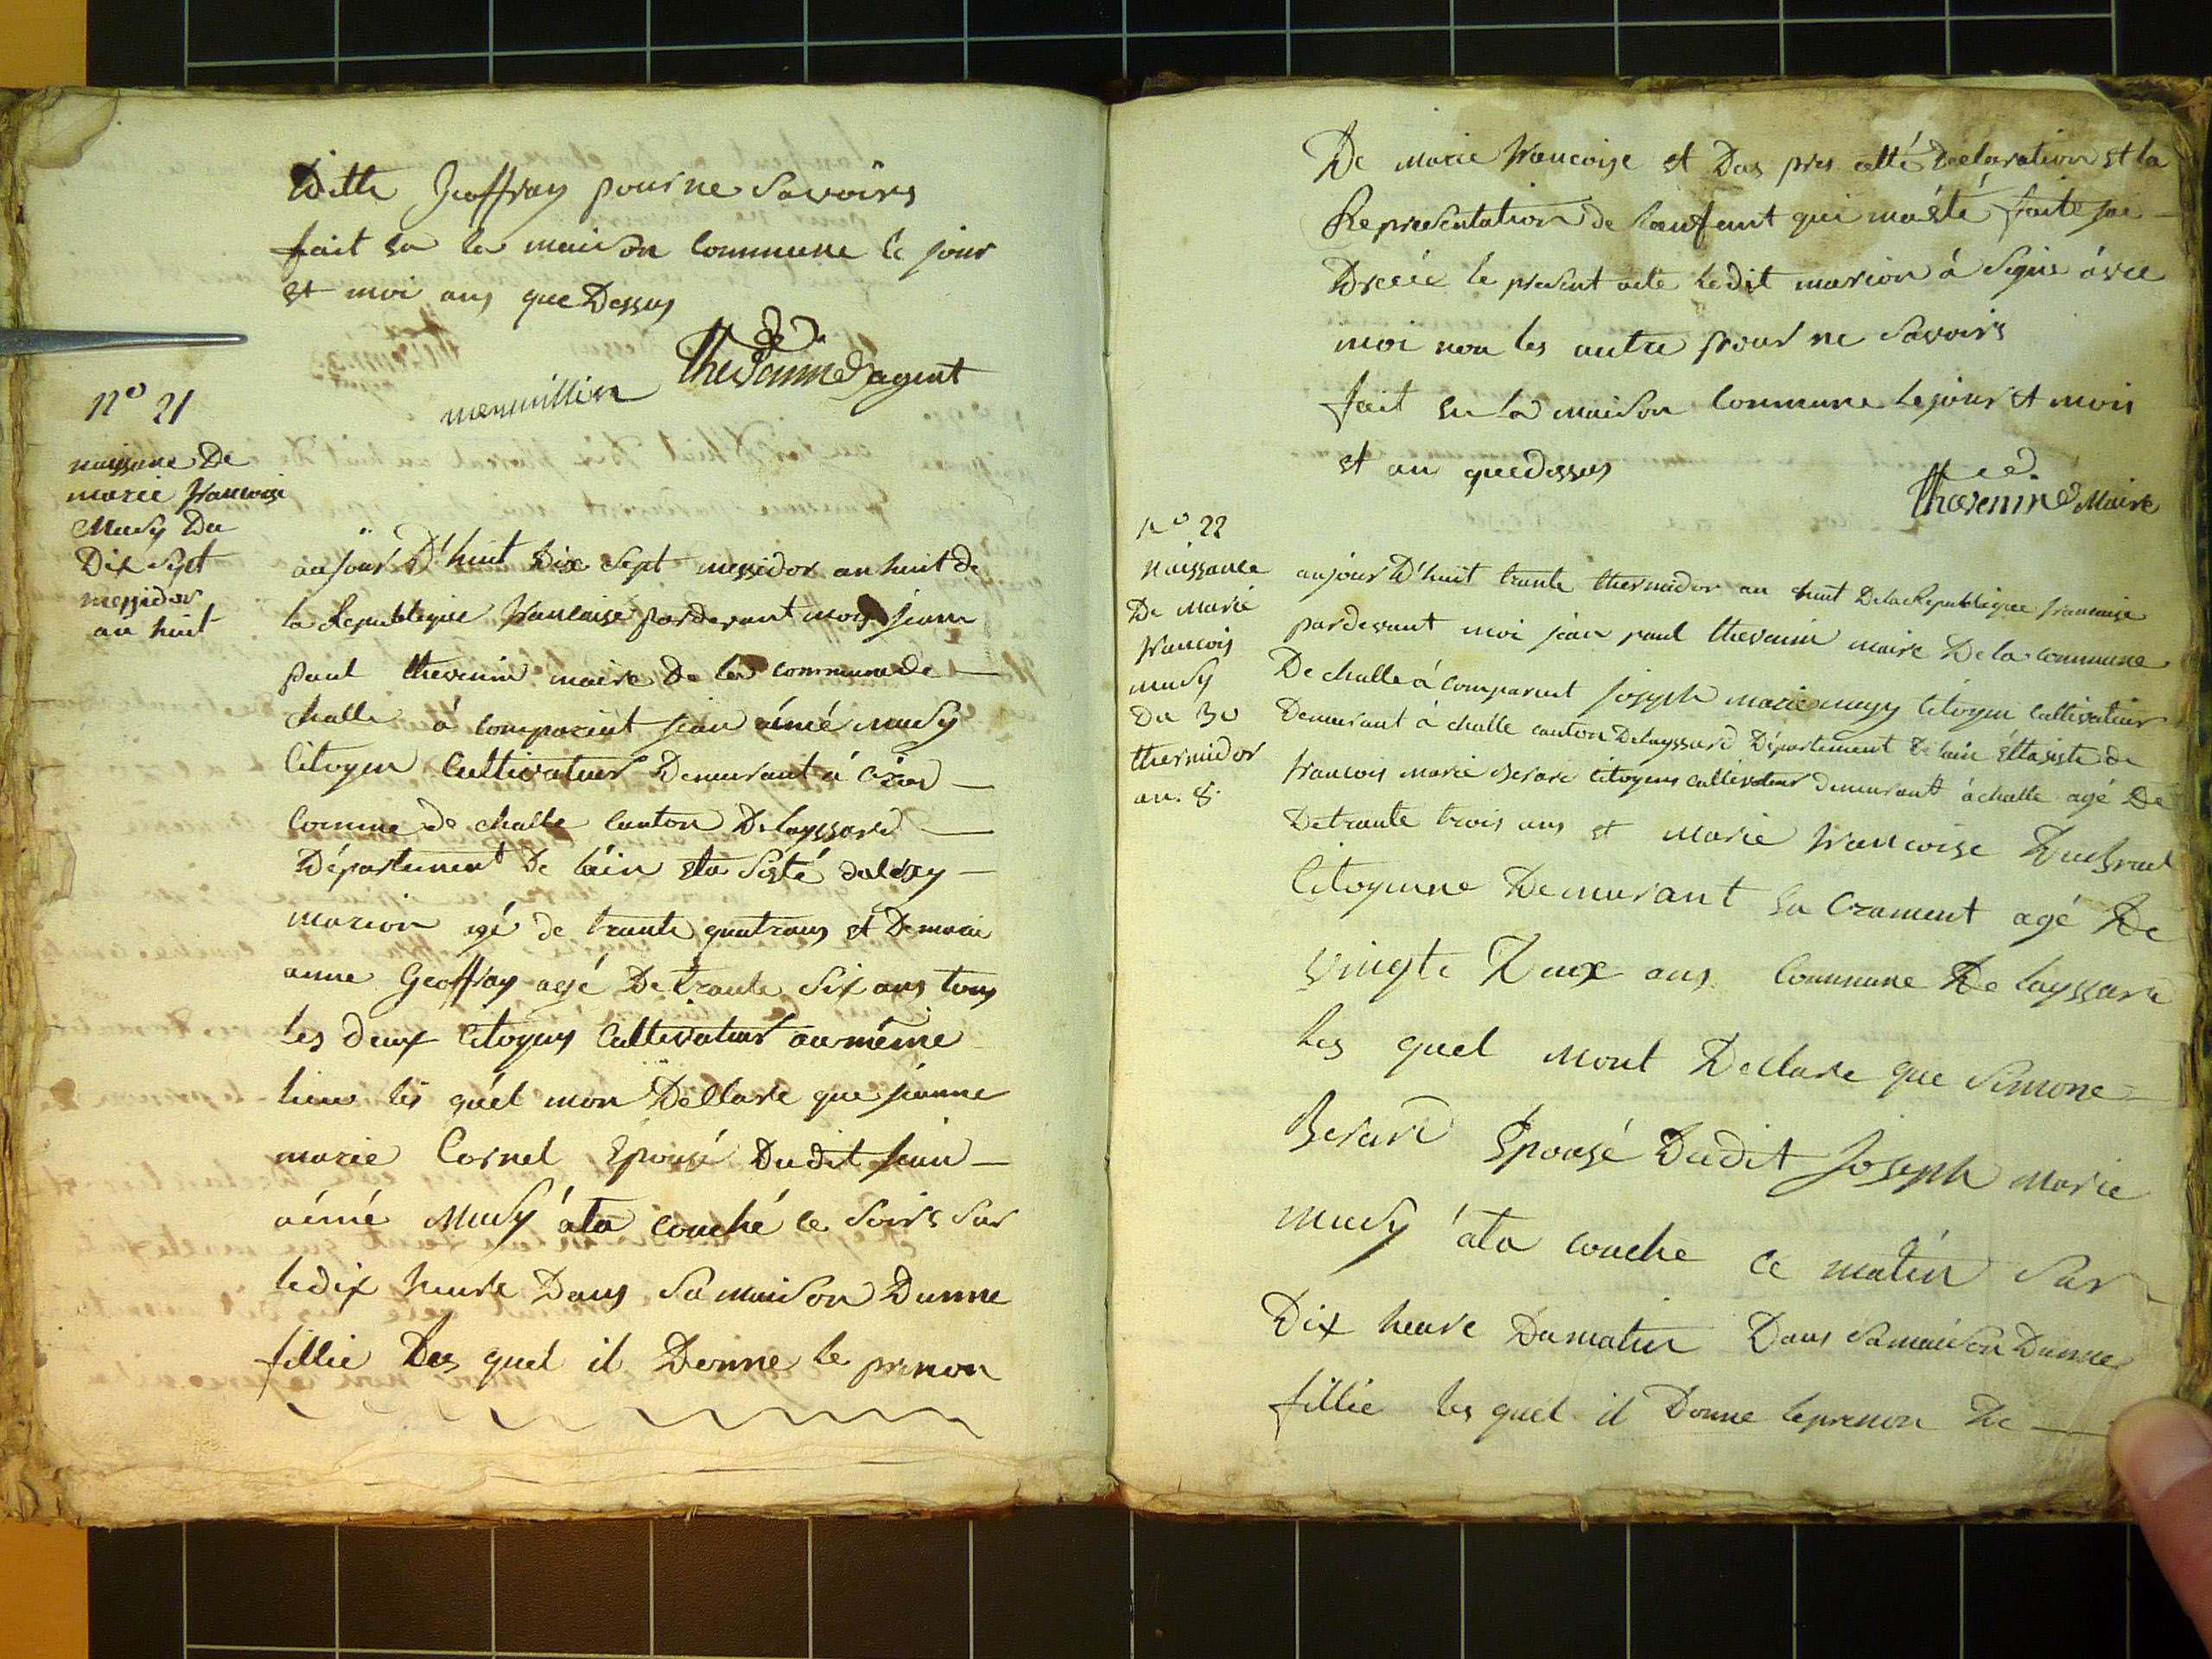 Ditte Geoffray pour ne Savoirs
fait en la maison Commune le jour
et moi ans que Dessus
mermillion Thevenin agent
n° 21
naissance De
marie francoise
Musy Du
Dix Sept
messidor
an huit
aujour D'huit Dix Sept messidor an huit de
la Republique francaise pardevant moi jean
paul thevenin maire De la commune de
challe á comparut jean aimé Musy
Citoyen Cultivateur Demurant á
Comune de challe Canton Deleyssard
Département De láin eta Sisté dalexy
marion agé de trante quatrans et De marie
anne Geoffray agé De trante Six ans tous
les deux Citoyens Cultivateur au même
lieu les quél mon Déllare que jeanne
marie Cornel Epousé Du dit jean
aimé Musy áta couché ce Soirs Sur
le dix heure Dans Sa maison Dunne
fillie Les quel il Donne le prenon
De marie francoise et Das pres cette Declaration et la
Representation de lenfant qui ma été faite jai
Dréée le present acte ledit marion á Signe ávec
moi non les autre pour ne Savoirs
fait en la maison Commune le jour et mois
et an que dessus
Thevenin Maire
n° 22
Naissance
De Marie
francois
musy
Du 30
thermidor
an. 8.
aujour D'huit trante thermidor an huit Dela Republique francaise
pardevant moi jean paul thevenin maire De la commune
De challe á comparut joseph marie musy Citoyen Cultivateur
Demurant á challe canton Deleyssard Département De lain etta siste de
francois marie Berard Citoyens cultivateur demurant á challe agé De
Detrante trois ans et Marie francoise
Citoyenne Demurant En Crament agé De
vingte Deux ans Commune De leyssard
les quel Mont Declare que Simone
Berard Epousé Dudit Joseph Marie
Musy áta couche ce matin Sur
Dix heure Dumatin Dans Samaison Dunne
fillie les quel il Donne leprenon De